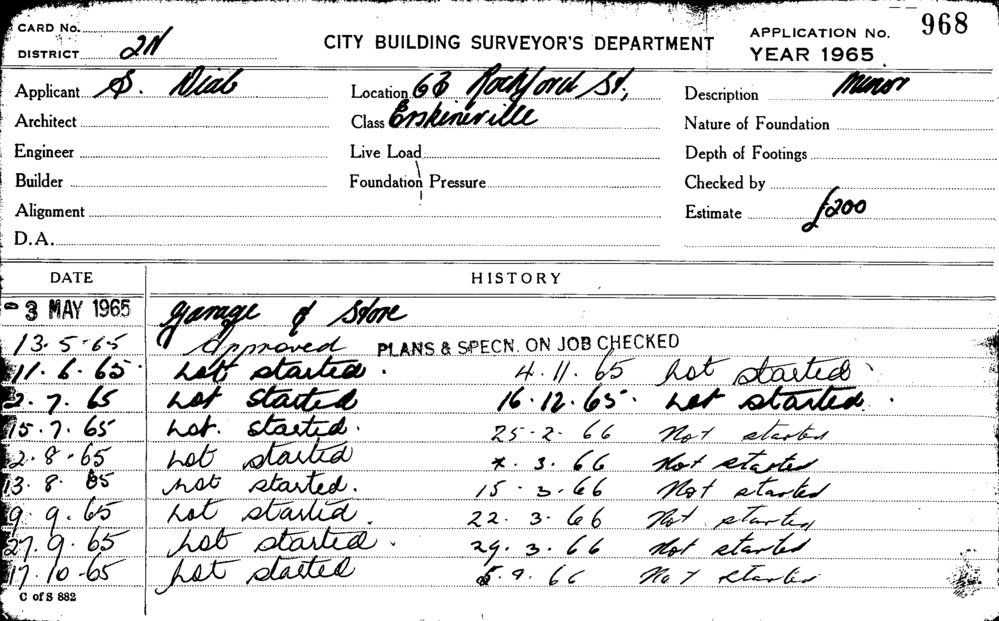 CARD No.
DISTRICT 2N
CITY BUILDING SURVEYOR'S DEPARTMENT
APPLICATION No. 968
YEAR 1965
Applicant S. Diab
Location 63 Rochford St,
Description Minor
Architect
Class Erskineville
Nature of Foundation
Engineer
Live Load
Depth of Footings
Builder
Foundation Pressure
Checked by
Alignment
Estimate £200
D.A.
DATE HISTORY
3 MAY 1965 Garage & Store
13.5.65 Approved PLANS & SPECN. ON JOB CHECKED
11.6.65 Not started. 4.11.65 Not started
2.7.65 Not started 16.12.65. Not started.
15.7.65 Not. started. 25-2-66 Not started
2.8.65 Not started .3.66 Not started
13.8.65 Not started. 15-3-66 Not started
9.9.65 Not started. 22.3.66 Not started
27.9.65 Not started. 29.3.66 Not started
17.10.65 Not started .9.66 Not started
C of S 882